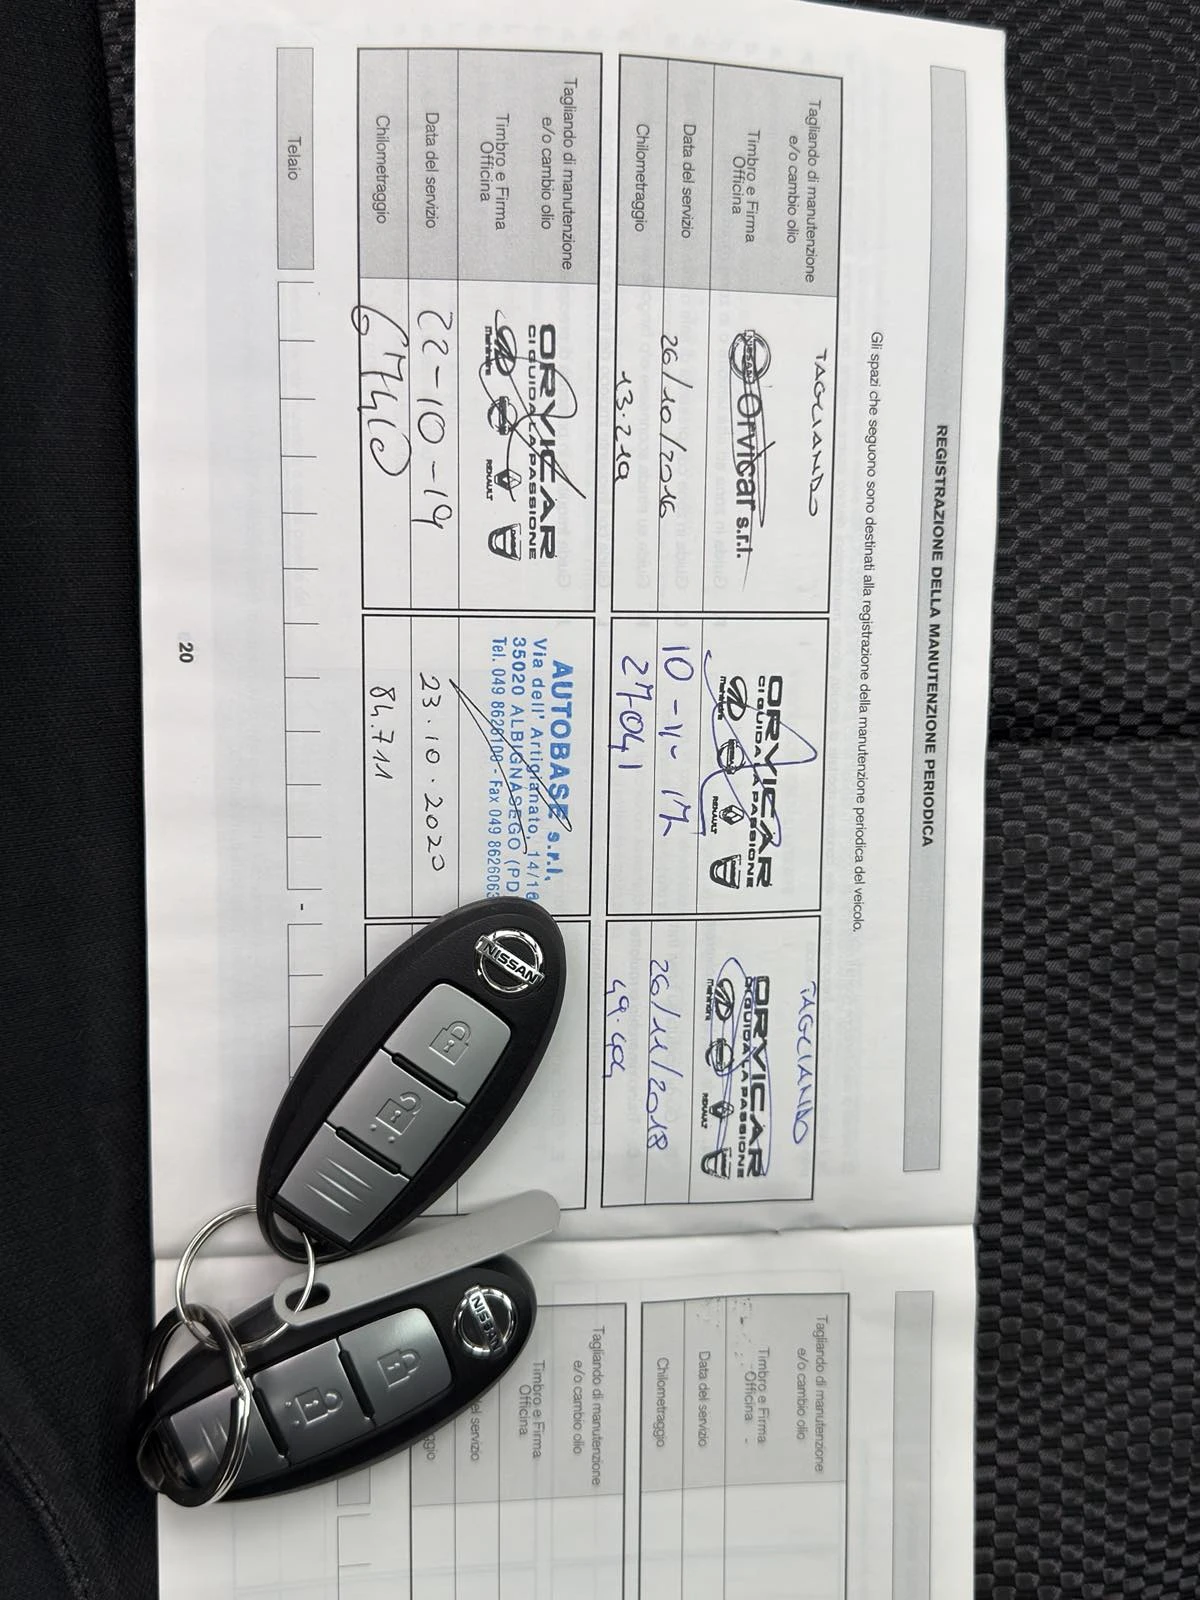 REGISTRAZIONE DELLA MANUTENZIONE PERIODICA
Gli spazi che seguono sono destinati alla registrazione della manutenzione periodica del veicolo.
Tagliando di manutenzione
e/o cambio olio
TAGLIANDO
TAGLIANDO
Timbro e Firma
Officina
NISSAN Orvicar s.r.l.
ORVICAR
CI GUIDA LA PASSIONE
Mahindra
RENAULT
ORVICAR
CI GUIDA LA PASSIONE
Mahindra
RENAULT
Data del servizio
26/10/2016
10-11-17
26/11/2018
Chilometraggio
13.219
27041
49.404
Tagliando di manutenzione
e/o cambio olio
Timbro e Firma
Officina
ORVICAR
CI GUIDA LA PASSIONE
Mahindra
RENAULT
AUTOBASE s.r.l.
Via dell' Artigianato, 14/16
35020 ALBIGNASEGO (PD
Tel. 049 8626100 - Fax 049 8626063
Data del servizio
22-10-19
23.10.2020
Chilometraggio
67440
84.711
Telaio
-
20
NISSAN
NISSAN
Tagliando di manutenzione
e/o cambio olio
Timbro e Firma
Officina
Data del servizio
Chilometraggio
Tagliando di manutenzione
e/o cambio olio
Timbro e Firma
Officina
el servizio
ggio